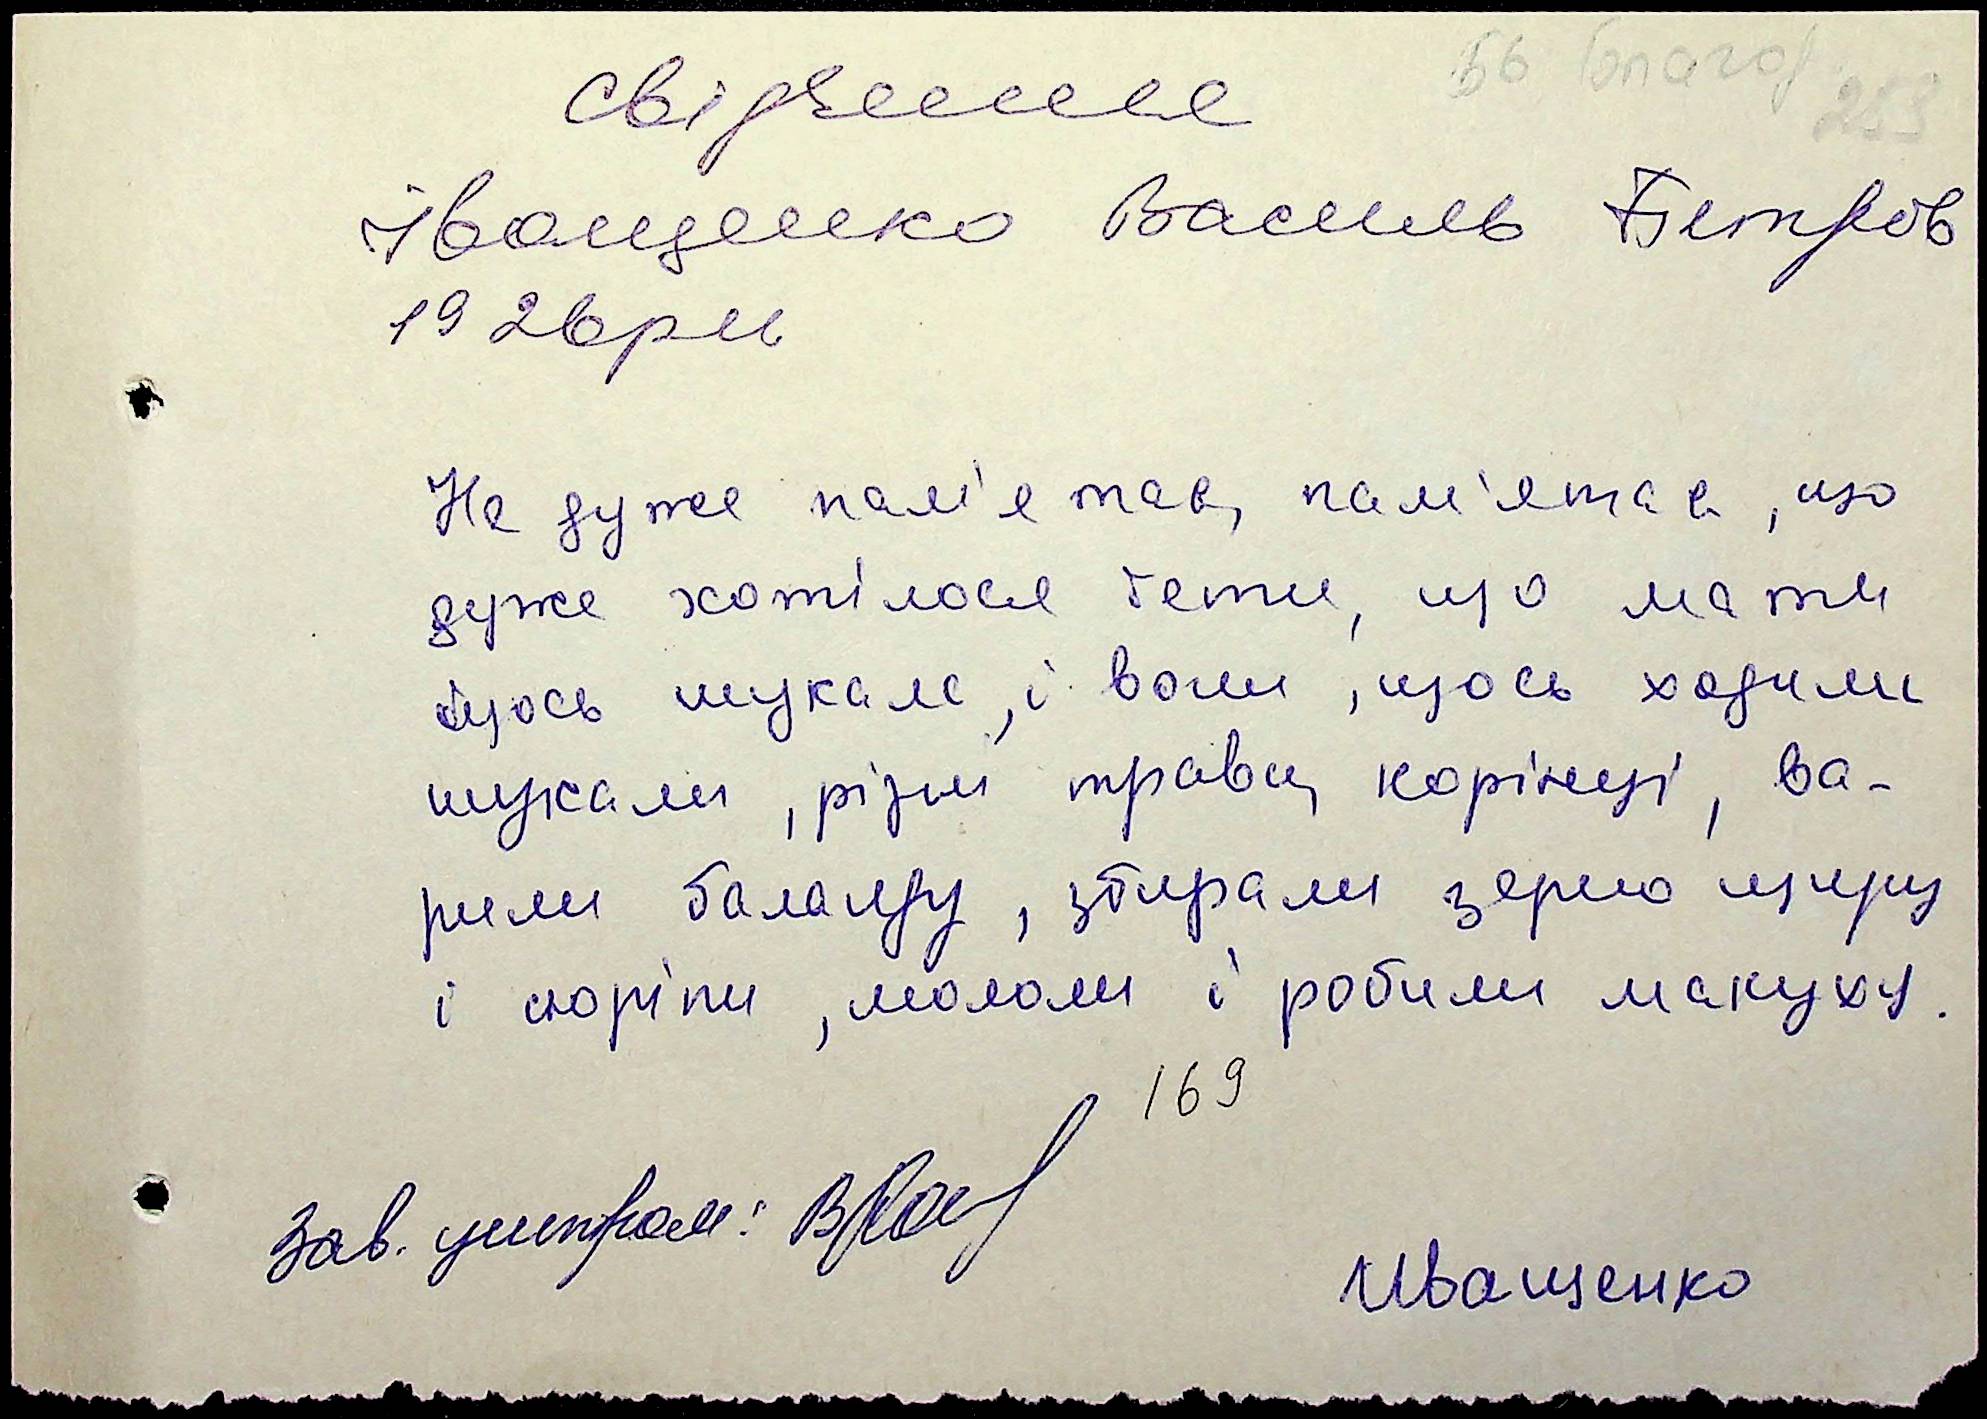 259
свідчення
Іващенко Василь Петров
1926рн
Не дуже пам'ятає, пам'ятає, що
дуже хотілося їсти, що мати
щось шукала, і вони, щось ходили
шукали, різні трави, корінці, ва-
рили баланду, збирали зерно щиру
і свіріпи, мололи і робили макуху.
169
Зав. центром:
Иващенко